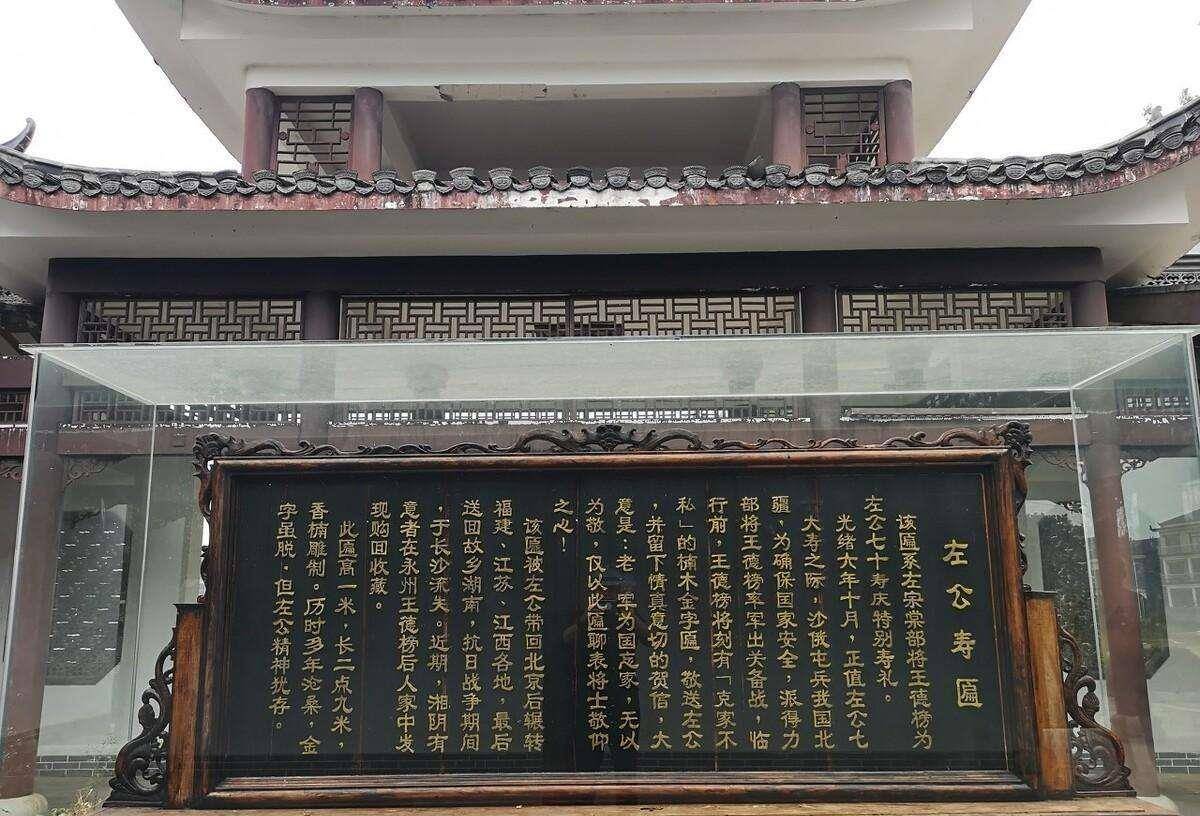 左公寿匾
该匾系左宗棠部将王德榜为
左公七十寿庆特别寿礼。
光绪六年十月，正值左公七
大寿之际，沙俄屯兵我国北
疆，为确保国家安全，派得力
部将王德榜率军出关备战，临
行前，王德榜将刻有「克家不
私」的楠木金字匾，敬送左公
，并留下情真意切的贺信，大
意是：老 军为国忘家，无以
为敬，仅以此匾聊表将士敬仰
之心！
该匾被左公带回北京后辗转
福建、江苏、江西各地，最后
送回故乡湖南，抗日战争期间
，于长沙流失。近期，湘阴有
意者在永州王德榜后人家中发
现购回收藏。
此匾高一米，长二点九米，
香楠雕制。历时多年沧桑，金
字虽脱，但左公精神扰存。